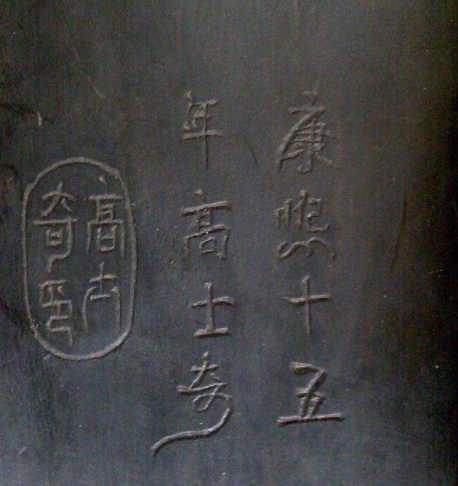 康熙十五
年高士奇
高士
奇印